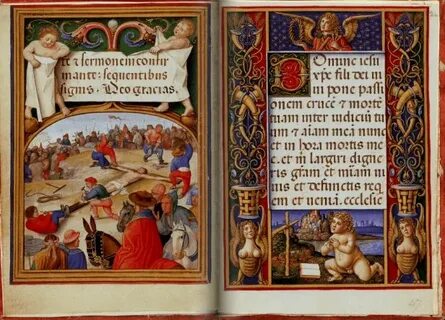 te & sermonem confir
mante: sequentibus
signis, Deo gracias.
Domine iesu
xp̄e fili dei vi
ui pone passi
onem crucē & mortē
tuam inter iudiciū tu
um & aīam meā nunc
et in hora mortis me
e. et mī largiri digne
ris grām et mīam ui
uis et defunctis req
em et ueniā. ecclesie